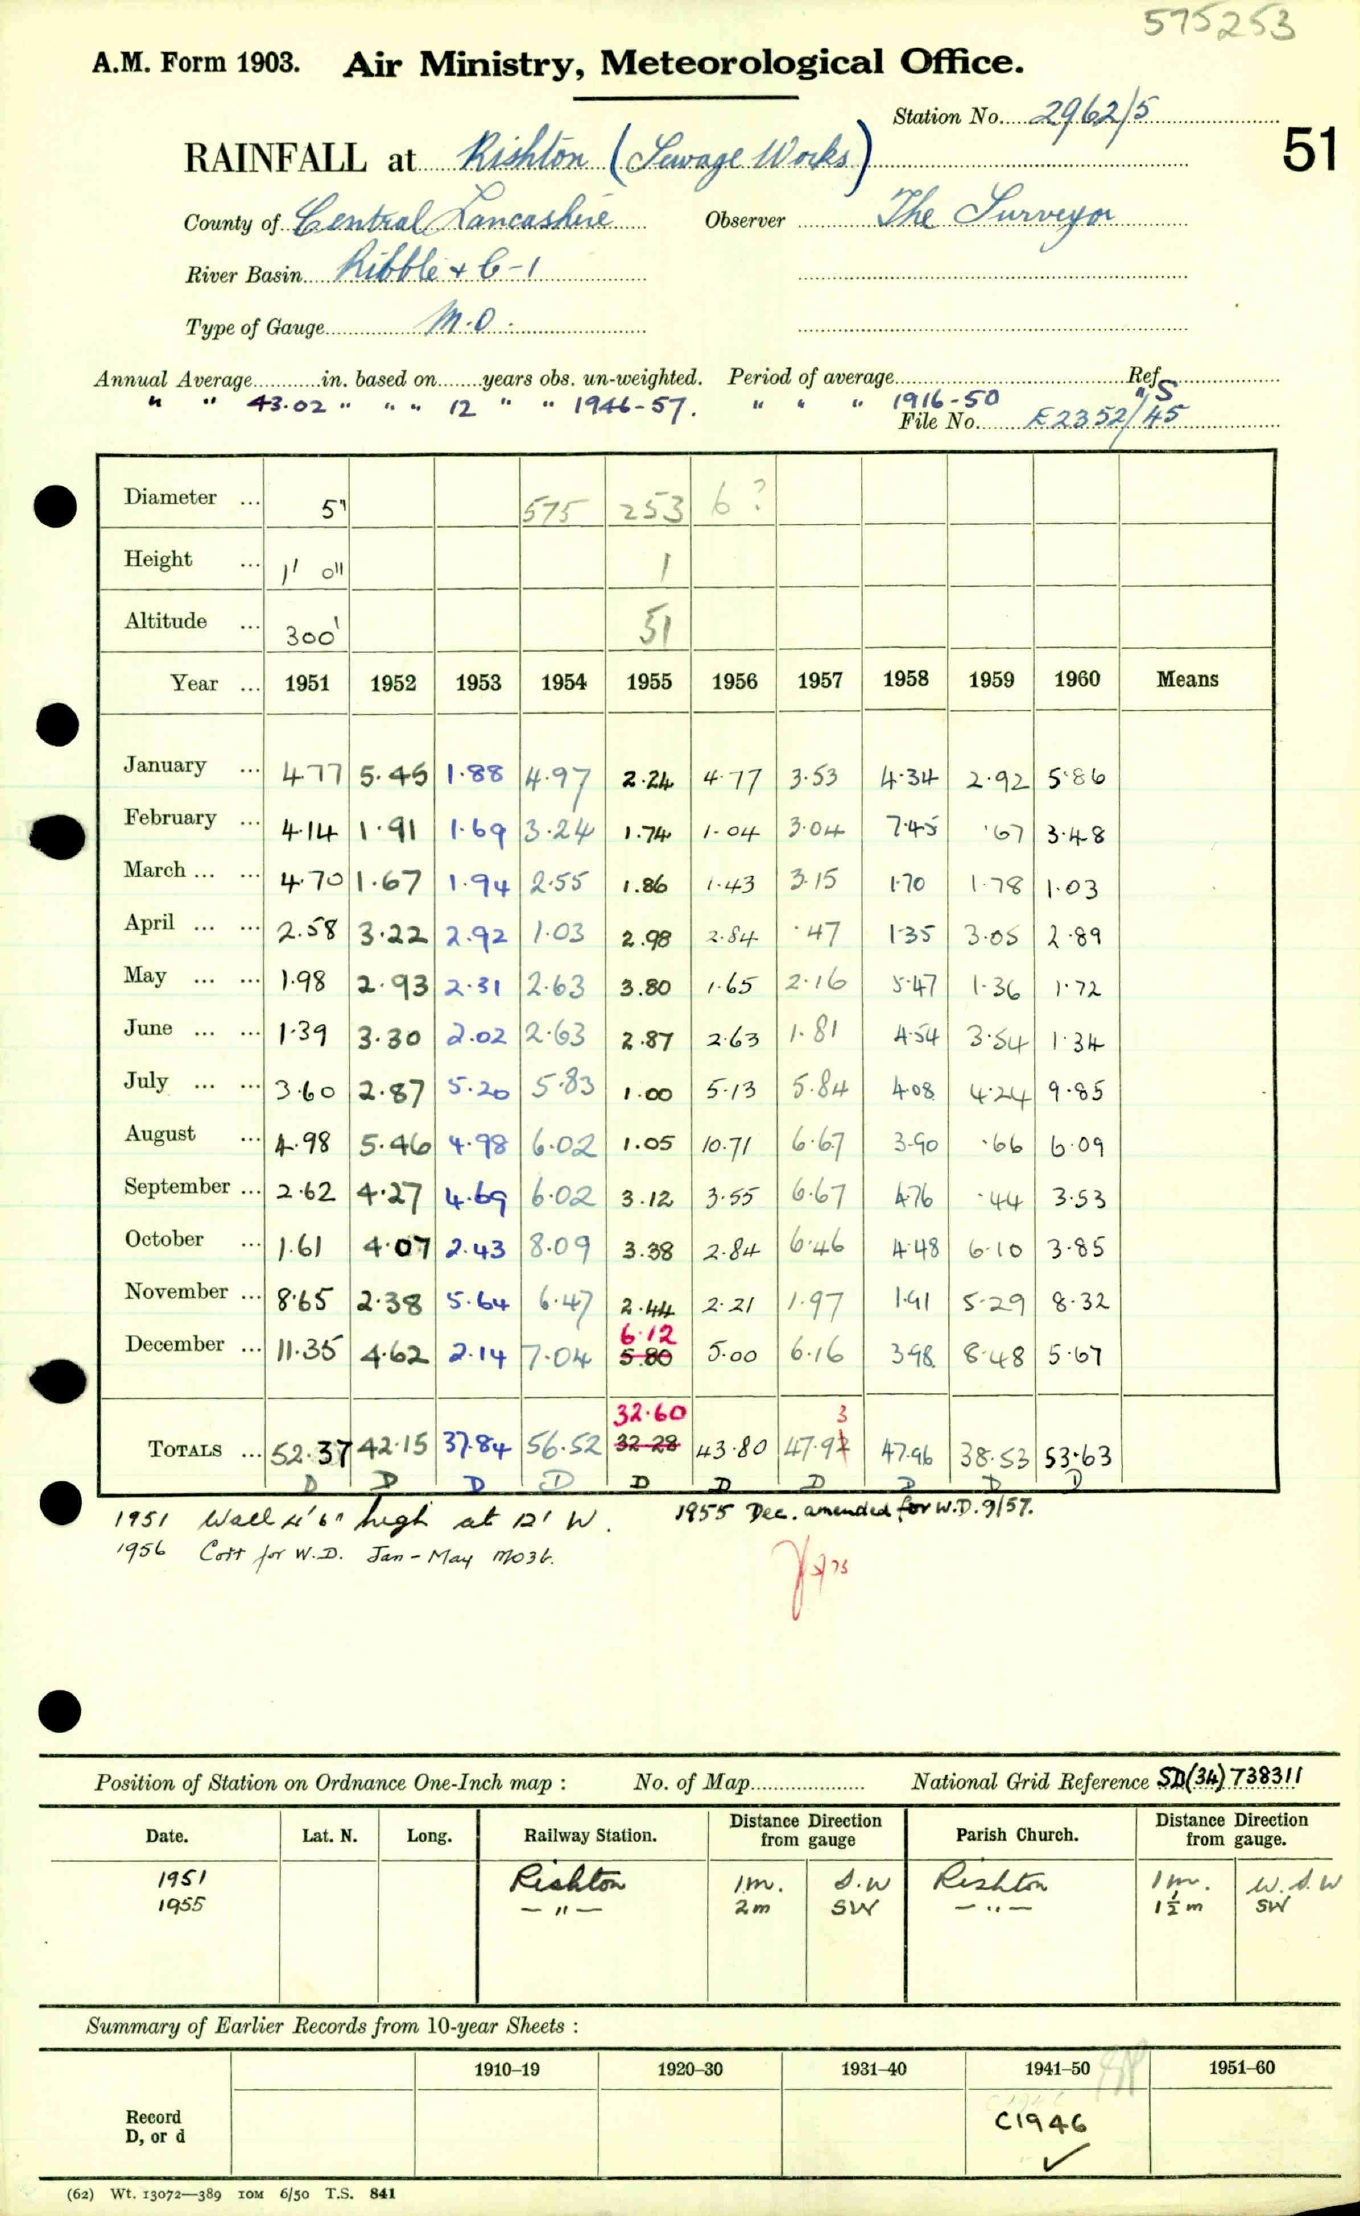 575253
A.M. Form 1903. Air Ministry, Meteorological Office.
Station No. 2962/5
51
RAINFALL at Rishton (Sewage Works)
County of Central Lancashire Observer The Surveyor
River Basin Ribble + C-1
Type of Gauge M.O.
Annual Average in. based on years obs. un-weighted. Period of average Ref
" " 43.02 " " " 12 " " 1946-57. " " " 1916-50 "S
File No. E2352/45
Diameter ... 5" 575 253 6?
Height ... 1' 0" 1
Altitude ... 300' 51
Year ... 1951 1952 1953 1954 1955 1956 1957 1958 1959 1960 Means
January ... 4.77 5.45 1.88 4.97 2.24 4.77 3.53 4.34 2.92 5.86
February ... 4.14 1.91 1.69 3.24 1.74 1.04 3.04 7.45 .67 3.48
March ... ... 4.70 1.67 1.94 2.55 1.86 1.43 3.15 1.70 1.78 1.03
April ... ... 2.58 3.22 2.92 1.03 2.98 2.84 .47 1.35 3.05 2.89
May ... ... 1.98 2.93 2.31 2.63 3.80 1.65 2.16 5.47 1.36 1.72
June ... ... 1.39 3.30 2.02 2.63 2.87 2.63 1.81 4.54 3.54 1.34
July ... ... 3.60 2.87 5.20 5.83 1.00 5.13 5.84 4.08 4.24 9.85
August ... 4.98 5.46 4.98 6.02 1.05 10.71 6.67 3.90 .66 6.09
September ... 2.62 4.27 4.69 6.02 3.12 3.55 6.67 4.76 .44 3.53
October ... 1.61 4.07 2.43 8.09 3.38 2.84 6.46 4.48 6.10 3.85
November ... 8.65 2.38 5.64 6.47 2.44 2.21 1.97 1.91 5.29 8.32
6.12
December ... 11.35 4.62 2.14 7.04 5.80 5.00 6.16 3.98 8.48 5.67
32.60 3
TOTALS ... 52.37 42.15 37.84 56.52 32.28 43.80 47.92 47.96 38.53 53.63
D D D D D D D D D D
1951 Wall 4'6" high at 12' W. 1955 Dec. amended for W.D. 9/57.
1956 Corr for W.D. Jan - May MO3b.
Position of Station on Ordnance One-Inch map : No. of Map National Grid Reference SD(34)738311
Date. Lat. N. Long. Railway Station. Distance Direction from gauge Parish Church. Distance Direction from gauge.
1951 Rishton 1m. S.W Rishton 1m. W.S.W
1955 — " — 2m SW — " — 1½m SW
Summary of Earlier Records from 10-year Sheets :
1910–19 1920–30 1931–40 1941–50 1951–60
Record
D, or d C1946 ✓
(62) Wt. 13072—389 10M 6/50 T.S. 841